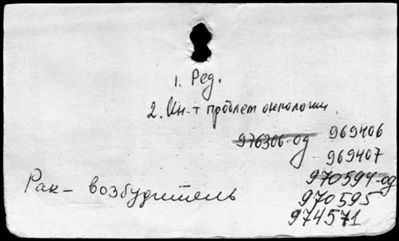 1. Ред.
2. Ин-т проблем онкологии.
976306-од 969406
969407
970594-од
Рак - возбудитель 970595
974571